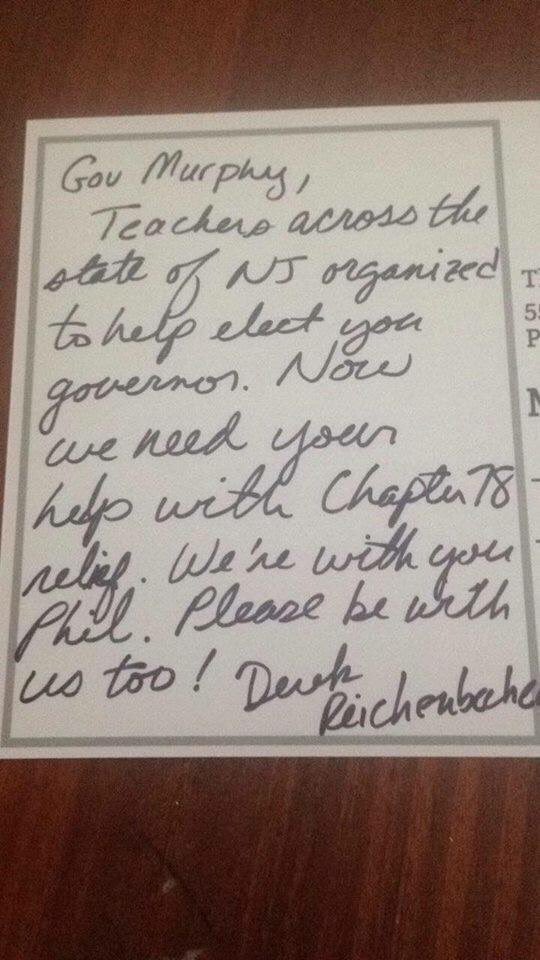 Gov Murphy,
Teachers across the
state of NJ organized
to help elect you
governor. Now
we need your
help with Chapter 78
relief. We're with you
Phil. Please be with
us too! Derek
Reichenbache
T
55
P
N